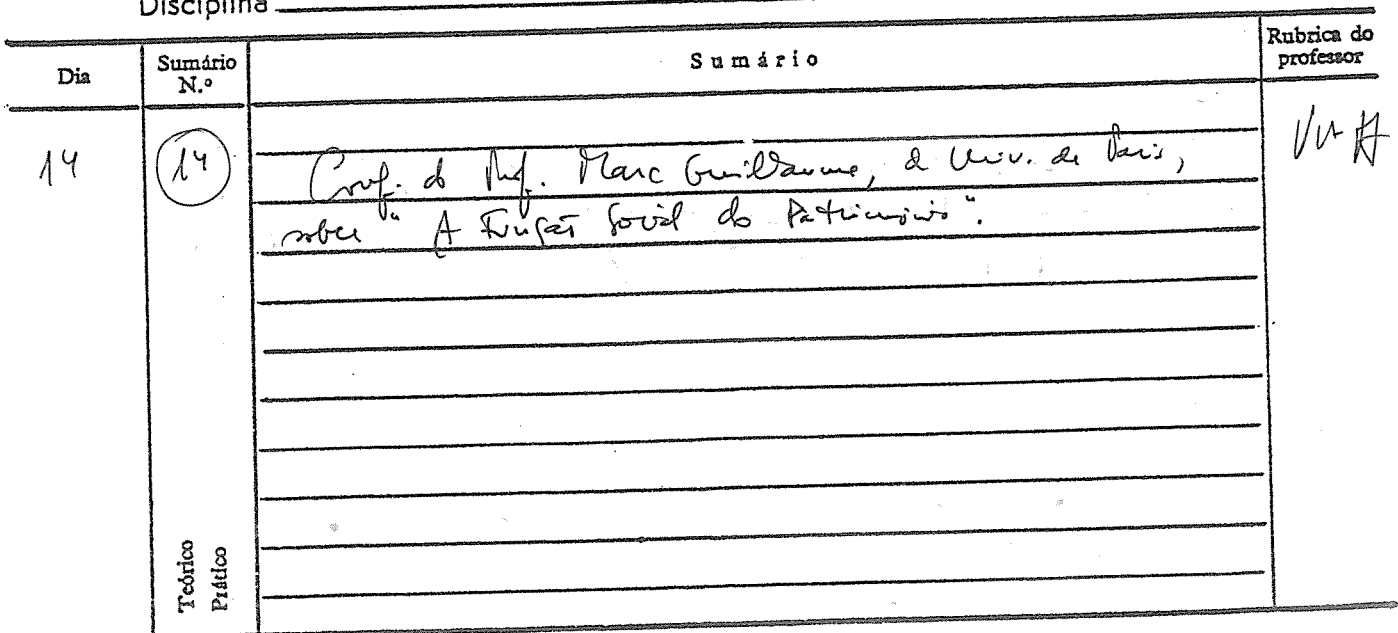 Disciplina
Dia
Sumário N.º
Sumário
Rubrica do professor
14
14
Conf. do Prof. Marc Guillaume, da Univ. de Paris,
sobre "A Função Social do Património".
Teórico
Prático